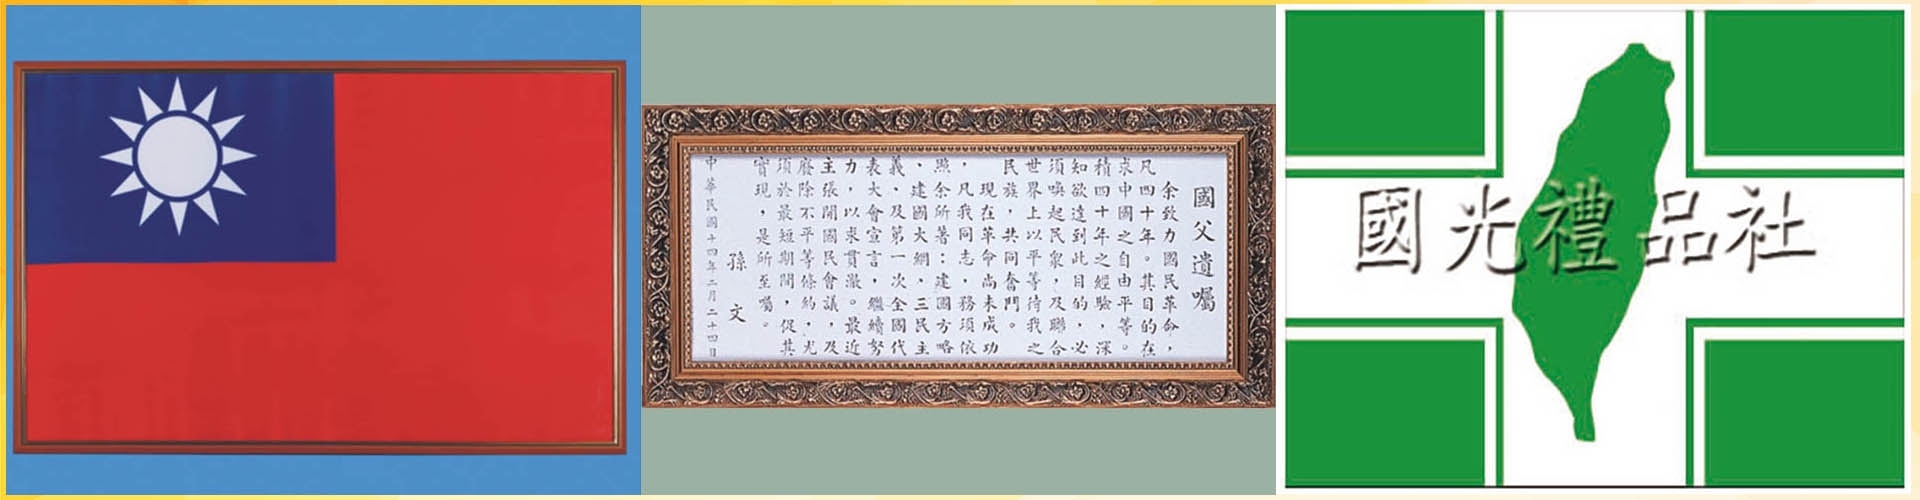 國父遺囑
余致力國民革命，
凡四十年。其目的在
求中國之自由平等。
積四十年之經驗，深
知欲達到此目的，必
須喚起民衆，及聯合
世界上以平等待我之
民族，共同奮鬥。
現在革命尚未成功
，凡我同志，務須依
照余所著：建國方略
、建國大綱、三民主
義、及第一次全國代
表大會宣言，繼續努
力，以求貫澈。最近
主張開國民會議，及
廢除不平等條約，尤
須於最短期間，促其
實現，是所至囑。
孫文
中華民國十四年二月二十四日
國光禮品社